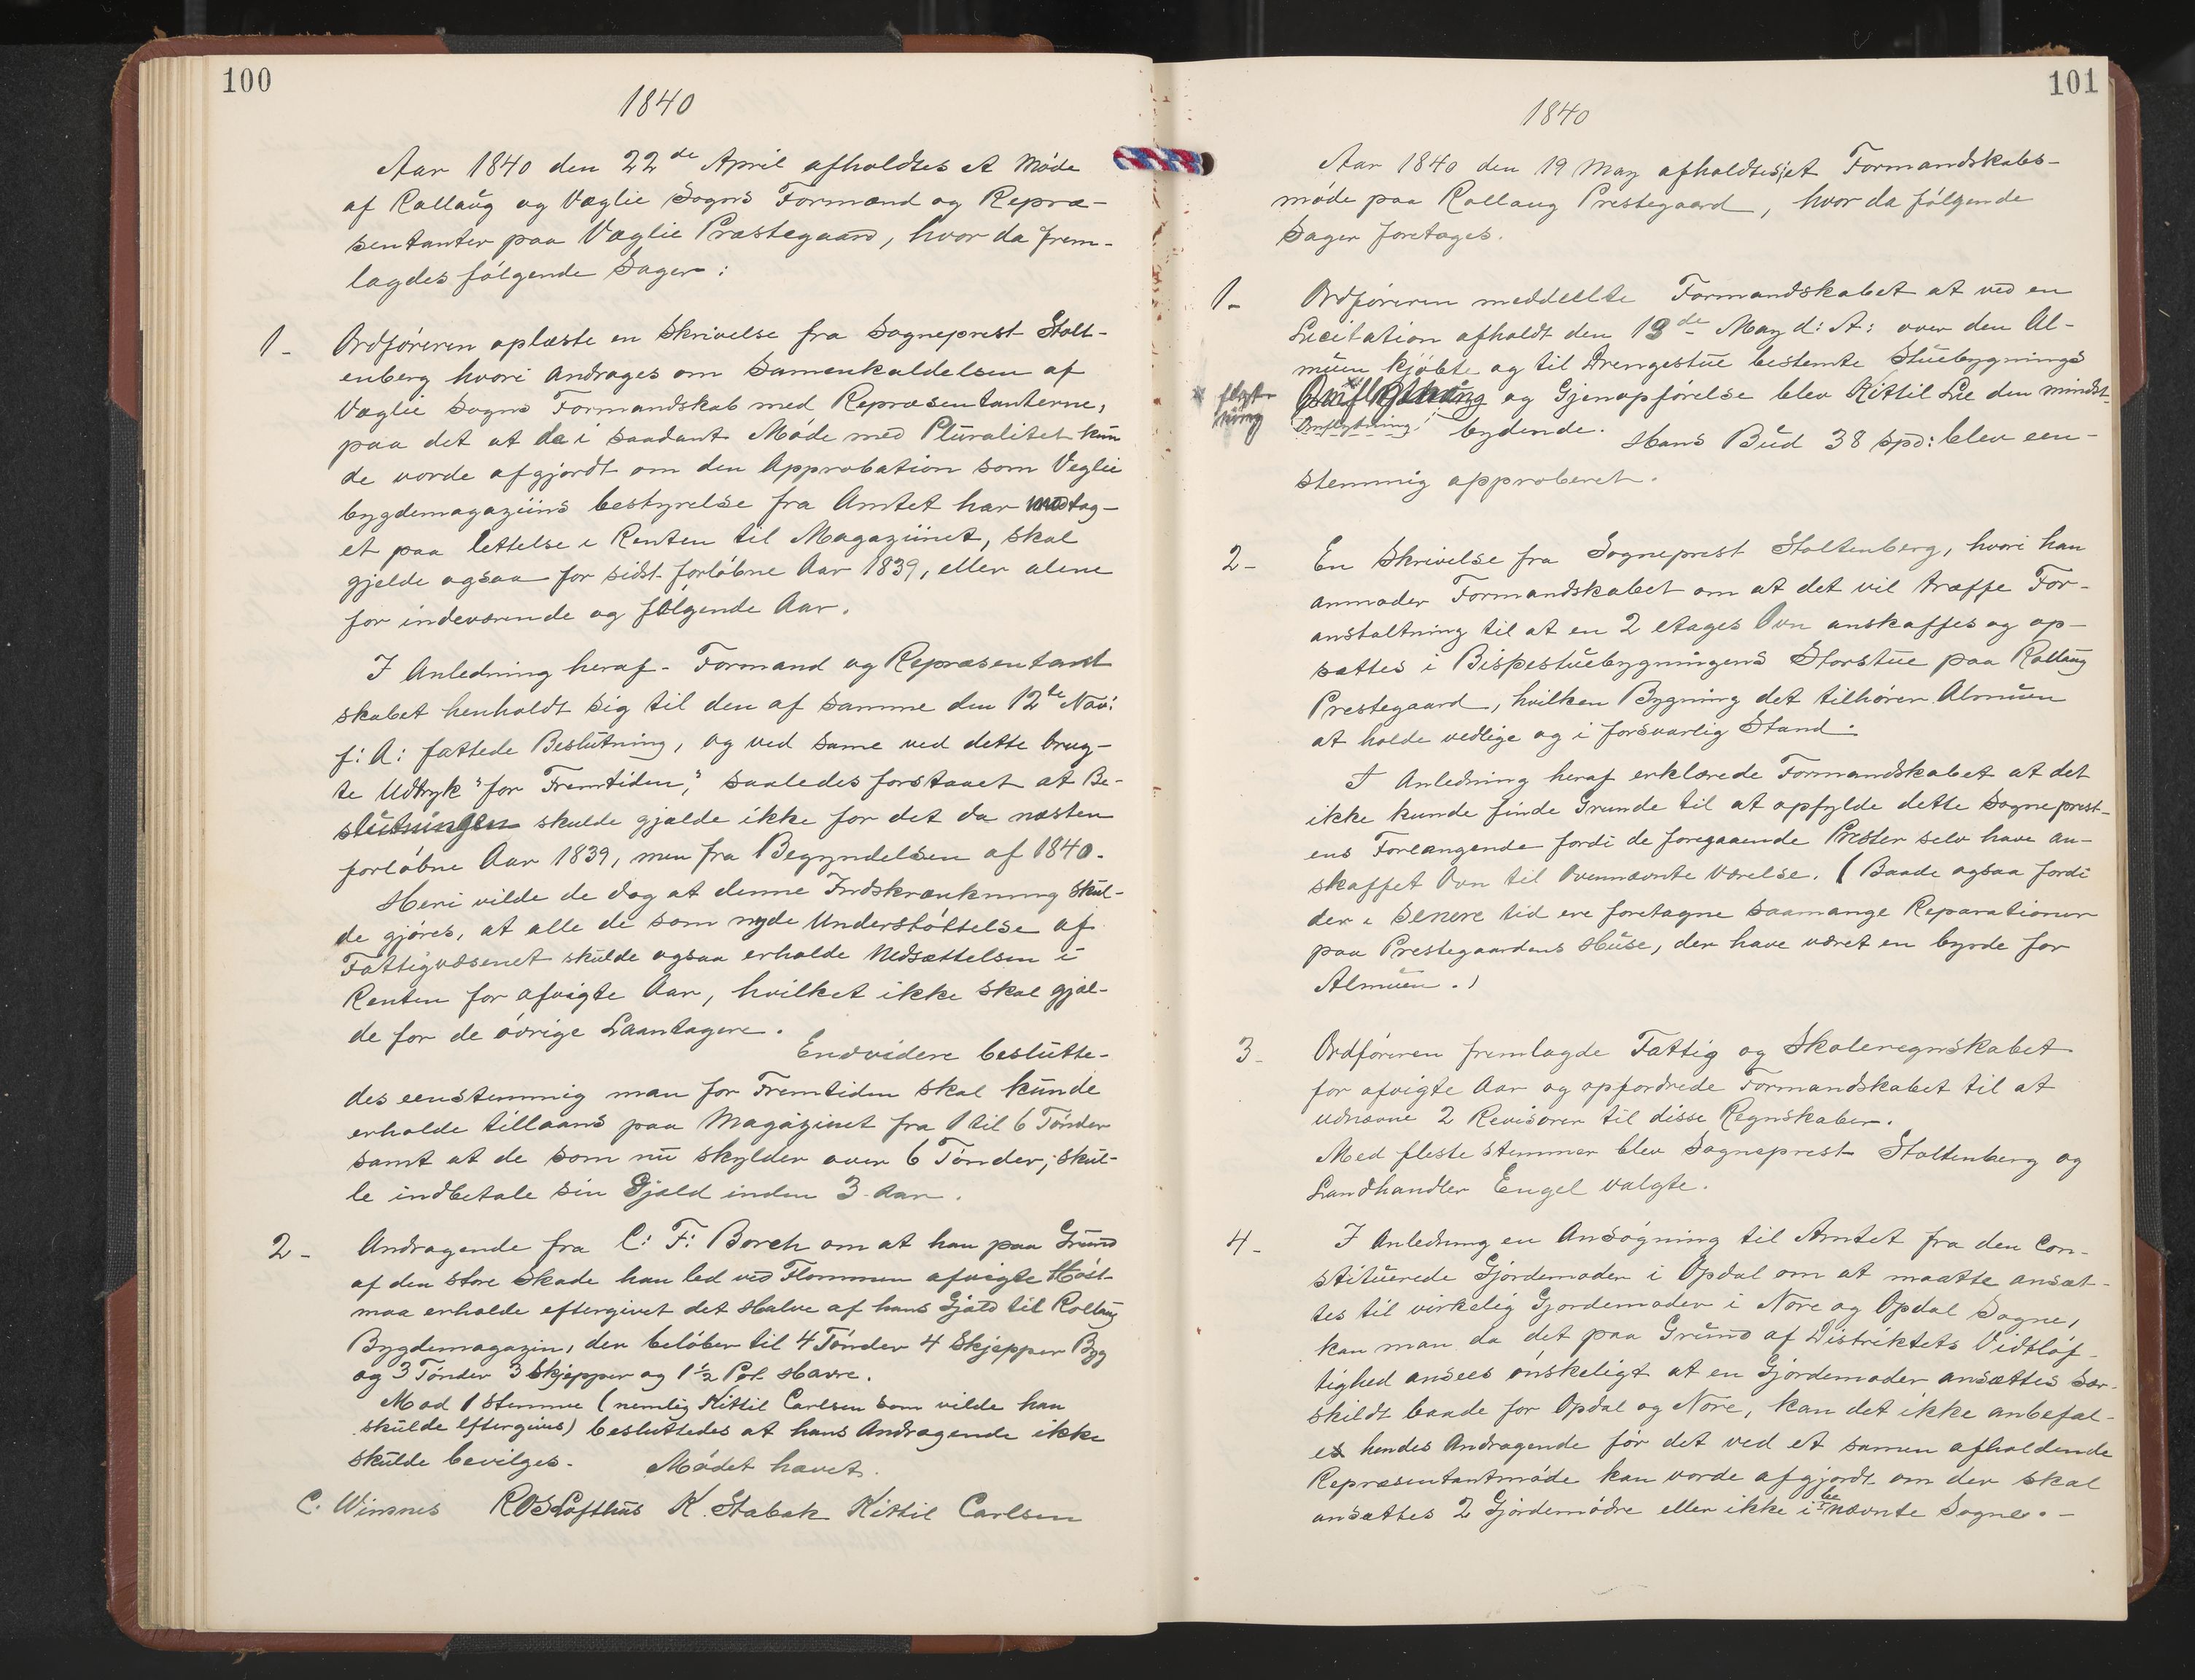 100
1840
Aar 1840 den 22de April afholdtes et Møde
af Rollaug og Væglie Sogns Formænd og Repræ-
sentanter paa Væglie Præstegaard, hvor da frem-
lagdes følgende Sager:
1- Ordføreren oplæste en Skrivelse fra Sogneprest Stolt-
enberg hvori andrages om Samenkaldelsen af
Væglie Sogns Formandskab med Repræsentanterne,
paa det at de i saadant Møde med Pluralitet kun
de vorde afgjordt om den Approbation som Veglie
bygdemagaziins bestyrelse fra Amtet har modtag-
et paa lettelse i Renten til Magaziinet, skal
gjelde ogsaa for sidst forløbne Aar 1839, eller alene
for indeværende og følgende Aar.
I Anledning heraf- Formand og Repræsentant
skabet henholdt sig til den af samme den 12te Nov:
f: A: fattede Beslutning, og ved same ved dette brug-
te Udtryk "for Fremtiden", saaledes forstaaet at Be-
slutningen skulde gjælde ikke for det da næsten
forløbne Aar 1839, men fra Begyndelsen af 1840.
Heri vilde de dog at denne Indskrænkning skul-
de gjøres, at alle de som nyde Understøttelse af
Fattigvæsenet skulde ogsaa erholde Nedsættelsen i
Renten for afvigte Aar, hvilket ikke skal gjæl-
de for de øvrige Laantagere.
Endvidere beslutte-
des eenstemmig man for Fremtiden skal kunde
erholde tillaans paa Magazinet fra 1 til 6 Tønder
samt at de som nu skylder over 6 Tønder, skul-
le indbetale sin Gjæld inden 3 Aar.
2- Andragende fra C: F: Borch om at han paa Grund
af den store Skade han led ved Flommen afvigte Høst
maa erholde eftergivet det Halve af hans Gjæld til Rollaug
Bygdemagazin, der beløber til 4 Tønder 4 Skjepper Byg
og 3 Tønder 3 Skjepper og 1½ Pot. Havre.
Mod 1 Stemme (nemlig Kittil Carlsen som vilde han
skulde eftergives) besluttedes at hans Andragende ikke
skulde bevilges. Mødet hævet.
C. Winsnes R OS Lofthus K. Stabak Kittil Carlsen
101
1840
Aar 1840 den 19 May afholdtes et Formandskabs-
møde paa Rollaug Prestegaard, hvor da følgende
Sager foretages.
1- Ordføreren meddeelte Formandskabet at ved en
Licitation afholdt den 13de May d: A: over den Al-
muen kjøbte og til Drengestue bestemte Stuebygnings
× flyt-
ning
Omflytning og Gjenopførelse blev Kittil Lie den mindst-
Omflytning! bydende. Hans Bud 38 spd: blev een-
stemmig approberet.
2- En Skrivelse fra Sogneprest Stoltenberg, hvori han
anmoder Formandskabet om at det vil træffe For-
anstaltning til at en 2 etages Ovn anskaffes og op-
sættes i Bispestuebygningens Storstue paa Rollaug
Prestegaard, hvilken Bygning det tilhører Almuen
at holde vedlige og i forsvarlig Stand.
I Anledning heraf erklærede Formandskabet at det
ikke kunde finde Grunde til at opfylde dette Sogneprest-
ens Forlangende fordi de foregaaende Prester selv have an-
skaffet Ovn til Ovennævnte Værelse. (Baade ogsaa fordi
der i senere tid ere foretagne saamange Reparationer
paa Prestegaardens Huse, der have været en byrde for
Almuen.)
3- Ordføreren fremlagde Fattig og Skoleregnskabet
for afvigte Aar og opfordrede Formandskabet til at
udnævne 2 Revisorer til disse Regnskaber.
Med fleste Stemmer blev Sogneprest Stoltenberg og
Landhandler Engel valgte.
4- I Anledning en Ansøgning til Amtet fra den Con-
stituerede Gjordemoder i Opdal om at maatte ansæt-
tes til virkelig Gjordemoder i Nore og Opdal Sogne,
kan man da det paa Grund af Distriktets Vidtløf-
tighed ansees ønskeligt at en Gjordemoder ansættes sær-
skildt baade for Opdal og Nore, kan det ikke anbefal-
es hendes Andragende før det ved et samen afholdende
Repræsentantmøde kan vorde afgjordt om der skal
ansættes 2 Gjordemødre eller ikke i benævnte Sogne. -